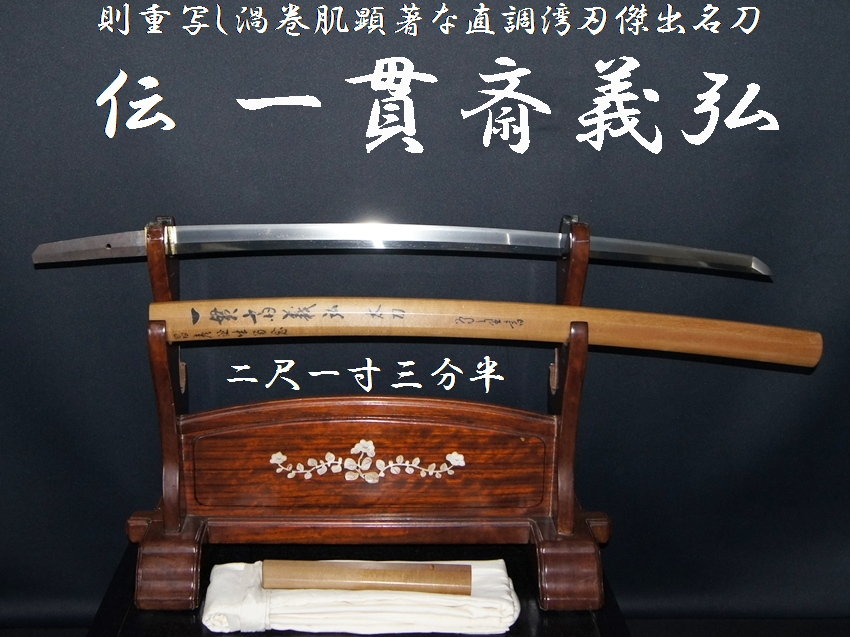 則重写し渦巻肌顕著な直調湾刃傑出名刀
伝 一貫斎義弘
一貫斎義弘 太刀
二尺一寸三分半